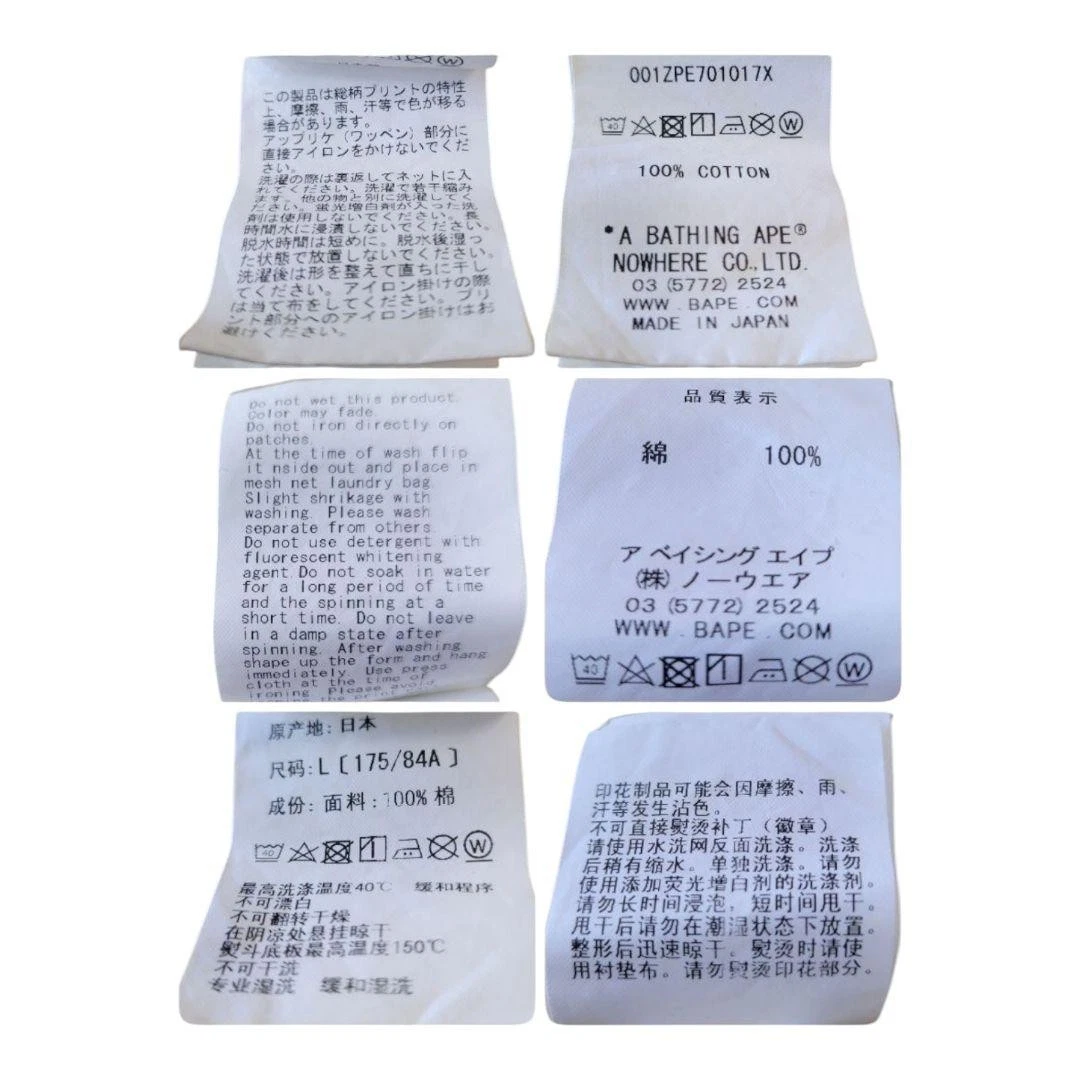 この製品は総柄プリントの特性
上、摩擦、雨、汗等で色が移る
場合があります。
アップリケ（ワッペン）部分に
直接アイロンをかけないでくだ
さい。
洗濯の際は裏返してネットに入
れてください。洗濯で若干縮み
ます。他の物と別に洗濯してく
ださい。蛍光増白剤が入った洗
剤は使用しないでください。長
時間水に浸漬しないでください。
脱水時間は短めに。脱水後湿っ
た状態で放置しないでください。
洗濯後は形を整えて直ちに干し
てください。アイロン掛けの際
は当て布をしてください。プリ
ント部分へのアイロン掛けはお
避けください。
001ZPE701017X
40 W
100% COTTON
*A BATHING APE®
NOWHERE CO.,LTD.
03 (5772) 2524
WWW.BAPE.COM
MADE IN JAPAN
Do not wet this product.
Color may fade.
Do not iron directly on
patches.
At the time of wash flip
it nside out and place in
mesh net laundry bag.
Slight shrikage with
washing. Please wash
separate from others.
Do not use detergent with
fluorescent whitening
agent.Do not soak in water
for a long period of time
and the spinning at a
short time. Do not leave
in a damp state after
spinning. After washing
shape up the form and hang
immediately. Use press
cloth at the time of
ironing. Please avoid
品質表示
綿 100%
ア ベイシング エイプ
(株) ノーウエア
03 (5772) 2524
WWW.BAPE.COM
40 W
原产地: 日本
尺码: L〔175/84A〕
成份: 面料: 100% 棉
40 W
最高洗涤温度40℃ 缓和程序
不可漂白
不可翻转干燥
在阴凉处悬挂晾干
熨斗底板最高温度150℃
不可干洗
专业湿洗 缓和湿洗
印花制品可能会因摩擦、雨、
汗等发生沾色。
不可直接熨烫补丁（徽章）
请使用水洗网反面洗涤。洗涤
后稍有缩水。单独洗涤。请勿
使用添加荧光增白剂的洗涤剂。
请勿长时间浸泡，短时间甩干。
甩干后请勿在潮湿状态下放置。
整形后迅速晾干。熨烫时请使
用衬垫布。请勿熨烫印花部分。